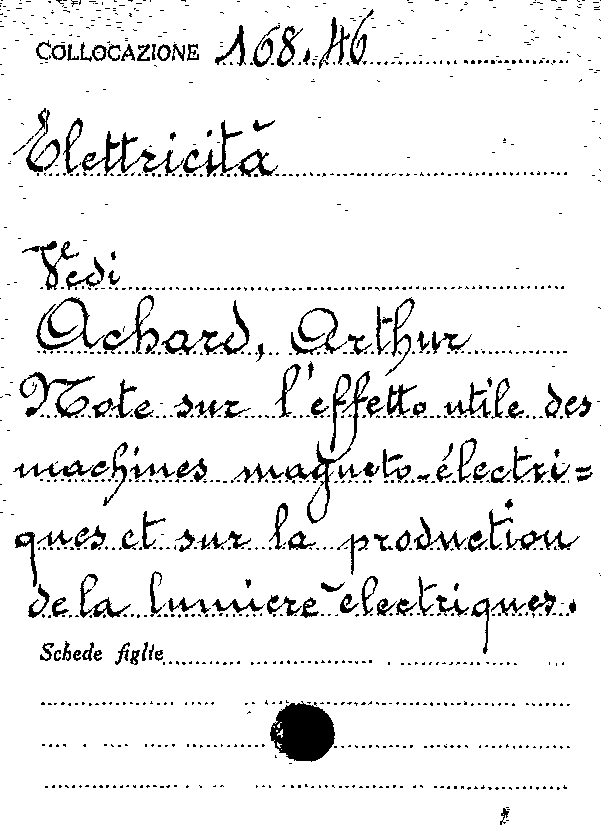 COLLOCAZIONE 168.46
Elettricità
Vedi
Achard, Arthur
Note sur l'effetto utile des
machines magneto-électri=
ques et sur la production
de la lumiere electriques.
Schede figlie